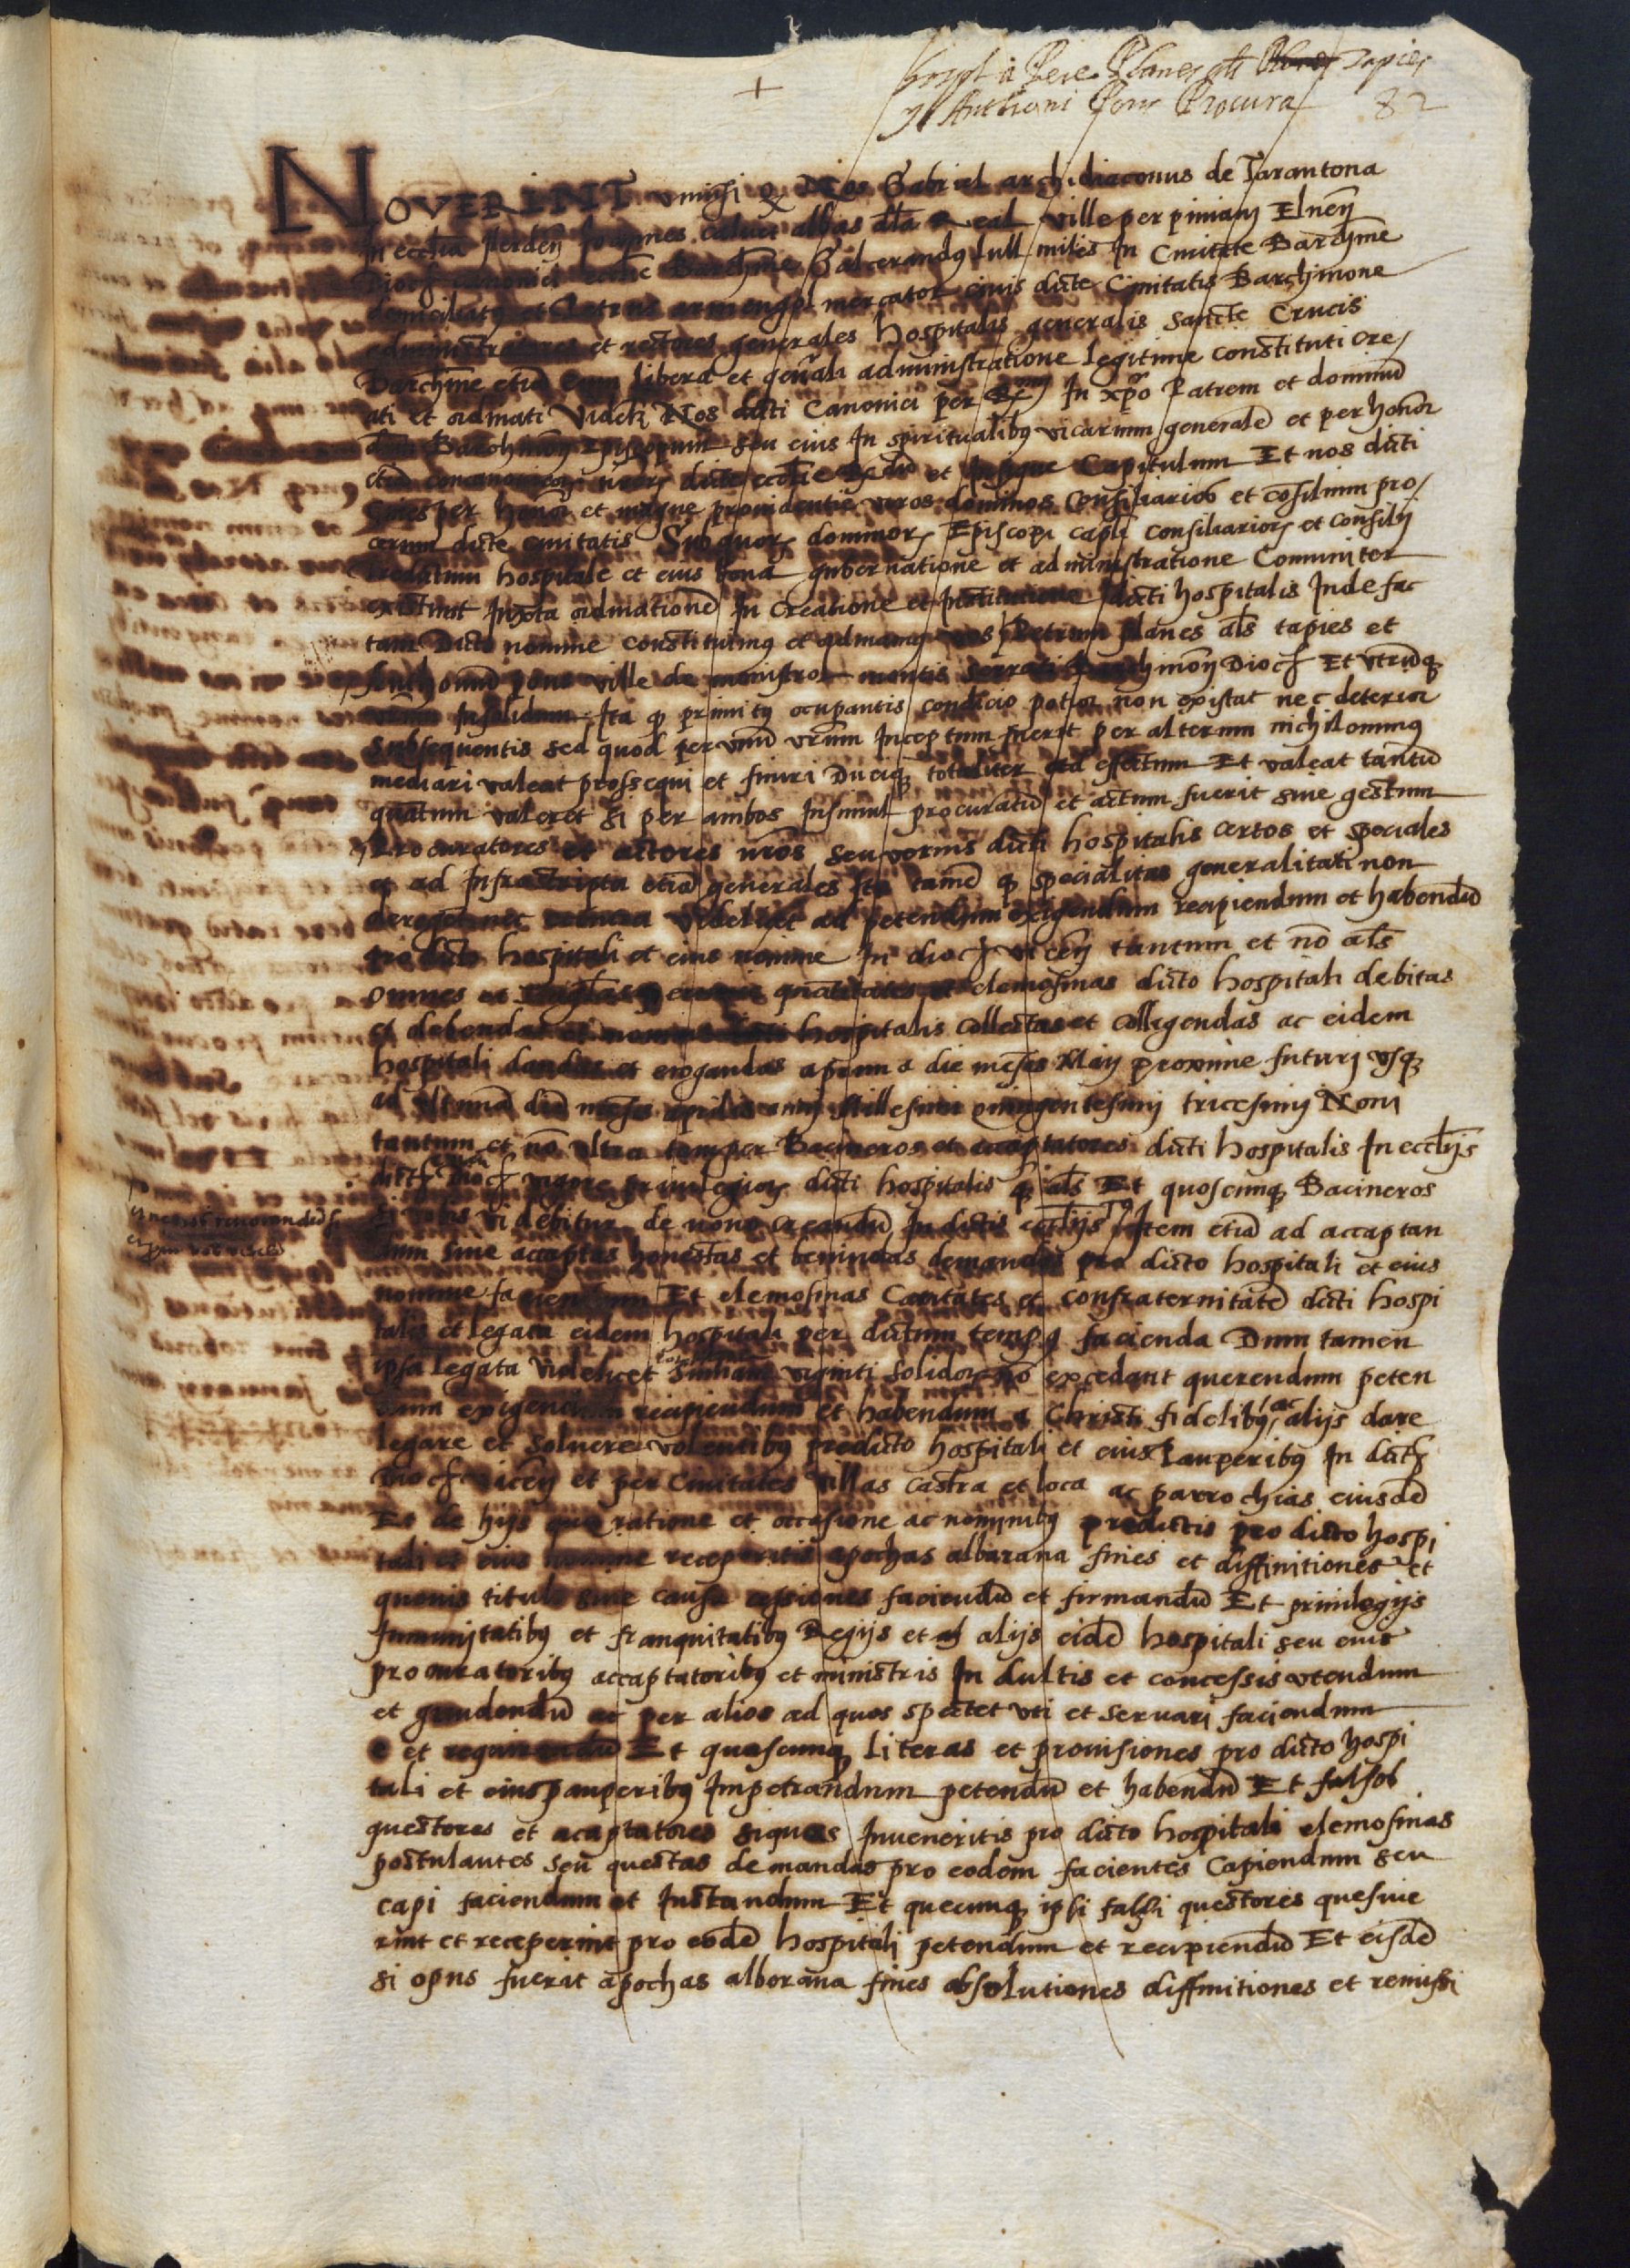 Pere Planes als Tapies
y Anthoni Pons Procura 82
NOVERINT universi q Nos Gabriel archidiaconus de Tarantona
In ecclia Ilerden Joannes calvet abbas dla Real ville perpiniani Elnen
Dioc canonici ecclie Barchne Galcerandus lull miles In Civitate Barchine
domiciliatus et Petrus armengol mercator civis dicte Civitatis Barchinone
administratores et rectores generales hospitalis generalis sancte Crucis
Barchne etia cum libera et general administratione legitime constituti cre/
ati et ordinati Videlt Nos dicti Canonici per In xpo Patrem et dominu
dnm Barchinon Episcopum seu eius In spiritualibus vicarium generale et per honor
concanonicor nror dicte ecclie et Capitulum Et nos dicti
Cives per honor et magne providentie viros dominos Consiliarios et cosilium pro/
cerum dicte civitatis Sub quor dominor Episcopi capli consiliarior et consilij
hospitale et eius bona gubernatione et administratione Comuniter
existunt Juxta ordinatione In creatione et Institutione dicti hospitalis Inde fac
tam Dicto nomine constituimus et ordinamus vos Petrum planes als tapies et
Anthoniu pons ville de monistrol montis serrati Barchinon Dioc Et utruq
vrum Insolidum Ita q primitus ocupantis condicio potior non existat nec deterior
subsequentis sed quod per unu vrum Inceptum fuerit per alterum nichilominus
mediari valeat prossequi et finiri Duciq totaliter ad effectum Et valeat tantu
quatum valeret si per ambos Insimul procuratu et actum fuerit sive gestum
Procuratores et actores nros seu verius dicti hospitalis certos et speciales
et ad Infrascripta etia generales Ita tame q specialitas generalitati non
deroget nec econtra Videlicet ad petendum exigendum recipiendum et habendu
pro dicto hospitali et eius nomine In dioc vicen tantum et no als
omnes et quatitates et elemosinas dicto hospitali debitas
et debendas et nomine dicti hospitalis collectas et colligendas ac eidem
hospitali dandas et erogandas a prima die mesis Maij proxime futuri usq
ad ultima die mesis aprilis anni Millesimi quingentesimi tricesimi Noni
tantum et no ultra tam per Bacineros et acaptatores dicti hospitalis In ecclijs
dicte Dioc vigore privilegior dicti hospitalis q als Et quoscunq Bacineros
si vobis videbitur de novo creandu In dictis ecclijs Item etiu ad accaptan
dum sive accaptas honestas et benivolas demandas pro dicto hospitali et eius
nomine faciendum Et elemosinas Caritates et confraternitate dicti hospi
talis et legata eidem hospitali per dictum tempus facienda Dum tamen
ipsa legata videlicet sumam viginti solidor no excedant querendum peten
dum exigendum recipiendum et habendum a Christi fidelibus ac alijs dare
legare et solvere volentibus predicto hospitali et eius Pauperibus In dict
Dioc vicen et per Civitates villas castra et loca ac parrochias eiusde
Et de hijs que ratione et occasione ac nominibus predictis pro dicto hospi
tali et eius nomine receperitis apochas albarana fines et diffinitiones et
quovis titulo sive causa cessiones faciendu et firmandu Et privilegijs
Inmunitatibus et franquitatibus Regijs et alijs eide hospitali seu eius
procuratoribus accaptatoribus et ministris In dultis et concessis utendum
et gaudendu ac per alios ad quos spectet uti et servari faciendum
et requirendu Et quascunq literas et provisiones pro dicto hospi
tali et eius pauperibus Impetrandum petendu et habendu Et falsos
questores et acaptatores siquos Inveneritis pro dicto hospitali elemosinas
postulantes seu questas demandas pro eodem facientes Capiendum seu
capi faciendum et Instandum Et quecunq ipsi falsi questores quesive
rint et receperint pro eode hospitali petendum et recipiendu Et eisde
si opus fuerit apochas alborana fines absolutiones diffinitiones et remissi